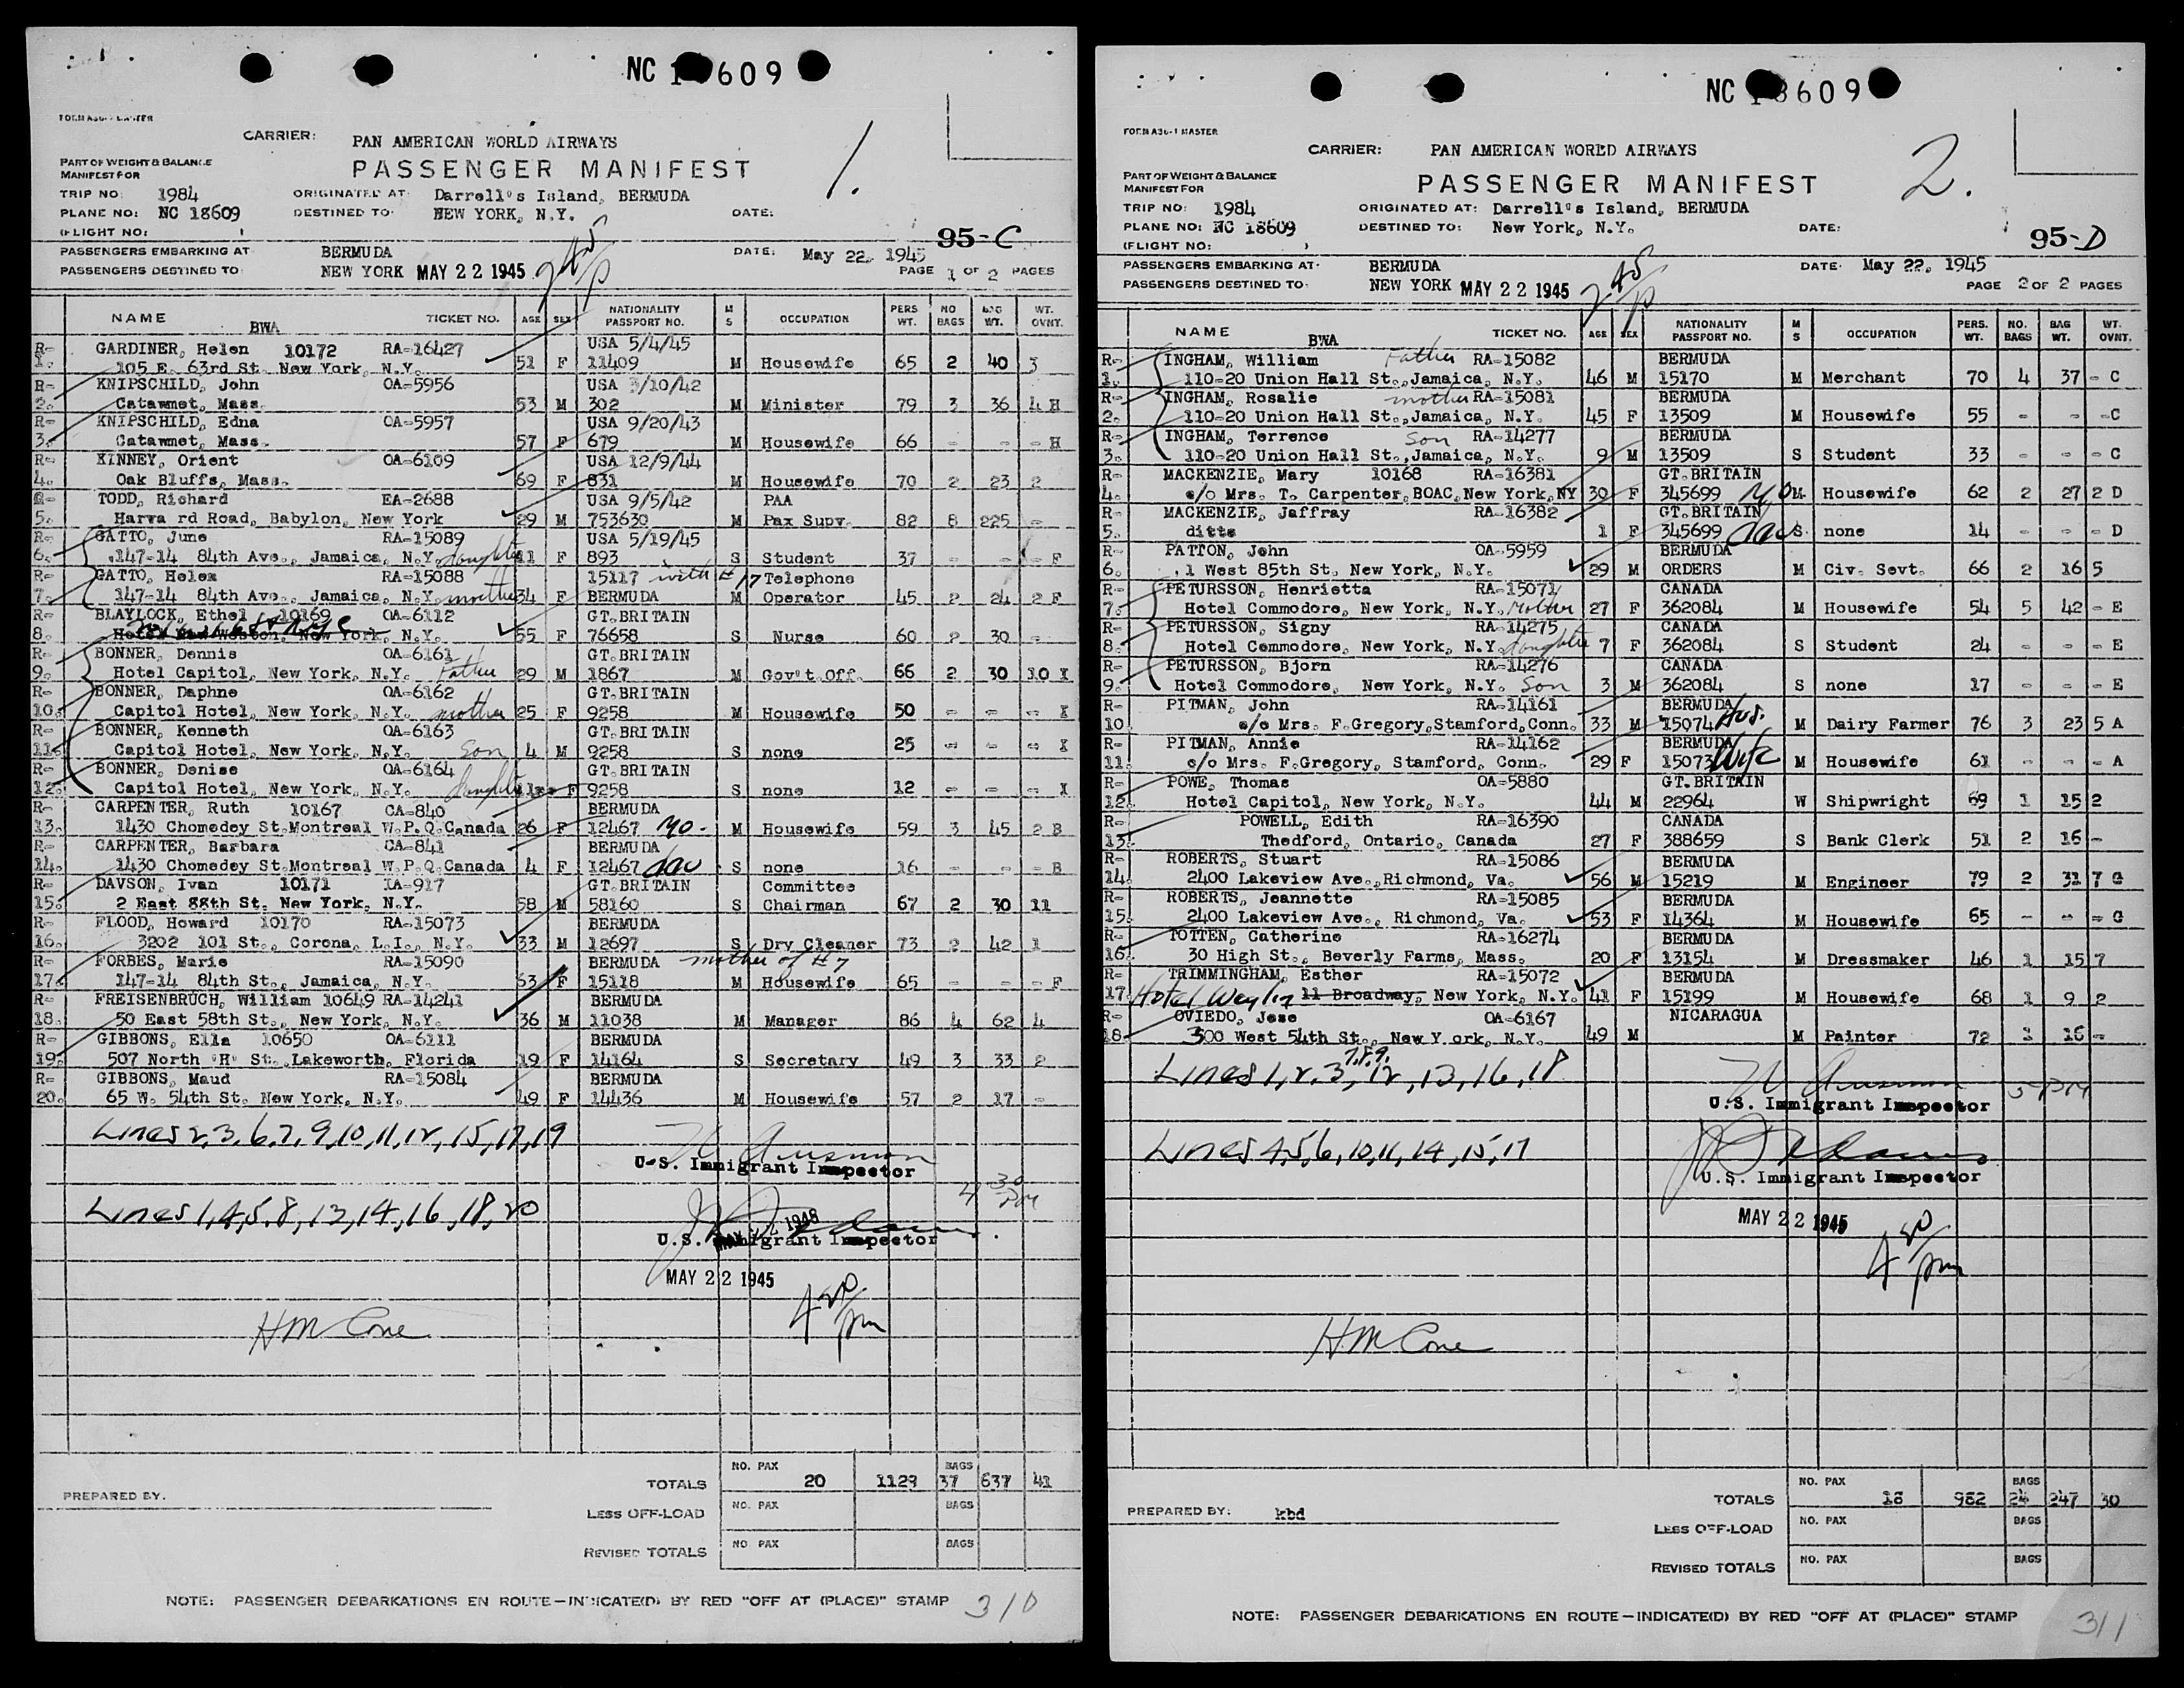 NC 609
FORM A36-1 MASTER
CARRIER: PAN AMERICAN WORLD AIRWAYS
1.
PART OF WEIGHT & BALANCE
MANIFEST FOR
PASSENGER MANIFEST
TRIP NO: 1984 ORIGINATED AT: Darrell's Island, BERMUDA
PLANE NO: NC 18609 DESTINED TO: NEW YORK, N.Y. DATE:
(FLIGHT NO: )
95-C
PASSENGERS EMBARKING AT BERMUDA DATE: May 22, 1945
PASSENGERS DESTINED TO NEW YORK MAY 22 1945 245/p PAGE 1 OF 2 PAGES
NAME BWA TICKET NO. AGE SEX NATIONALITY PASSPORT NO. M S OCCUPATION PERS WT. NO BAGS BAG WT. WT. OVNT.
R- GARDINER, Helen 10172 RA-16427 USA 5/4/45
1. 105 E. 63rd St. New York, N.Y. 51 F 11409 M Housewife 65 2 40 3
R- KNIPSCHILD, John OA-5956 USA 3/10/42
2. Catawmet, Mass. 53 M 302 M Minister 79 3 36 4 H
R- KNIPSCHILD, Edna OA-5957 USA 9/20/43
3. Catawmet, Mass. 57 F 679 M Housewife 66 - - - H
R- KINNEY, Orient OA-6109 USA 12/9/44
4. Oak Bluffs, Mass. 69 F 831 M Housewife 70 2 23 2
R- TODD, Richard EA-2688 USA 9/5/42 PAA
5. Harva rd Road, Babylon, New York 29 M 753630 M Pax Supv. 82 8 225 -
R- GATTO, June RA-15089 USA 5/19/45
6. 147-14 84th Ave., Jamaica, N.Y. daughter 11 F 893 S Student 37 - - - F
R- GATTO, Helen RA-15088 15117 with # 17 Telephone
7. 147-14 84th Ave., Jamaica, N.Y. mother 34 F BERMUDA M Operator 45 2 24 2 F
R- BLAYLOCK, Ethel 10169 OA-6112 GT.BRITAIN
8. New York, N.Y. 55 F 76658 S Nurse 60 2 30 -
R- BONNER, Dennis OA-6161 GT.BRITAIN
9. Hotel Capitol, New York, N.Y. Father 29 M 1867 M Gov't.Off. 66 2 30 10 I
R- BONNER, Daphne OA-6162 GT.BRITAIN
10. Capitol Hotel, New York, N.Y. mother 25 F 9258 M Housewife 50 - - - I
R- BONNER, Kenneth OA-6163 GT.BRITAIN
11. Capitol Hotel, New York, N.Y. Son 4 M 9258 S none 25 - - - I
R- BONNER, Denise OA-6164 GT.BRITAIN
12. Capitol Hotel, New York, N.Y. daughter F 9258 S none 12 - - - I
R- CARPENTER, Ruth 10167 CA-840 BERMUDA
13. 1430 Chomedey St.Montreal W.P.Q.Canada 26 F 12467 mo. M Housewife 59 3 45 2 B
R- CARPENTER, Barbara CA-841 BERMUDA
14. 1430 Chomedey St.Montreal W.P.Q.Canada 4 F 12467 dau S none 16 - - - B
R- DAVSON, Ivan 10171 IA-917 GT.BRITAIN Committee
15. 2 East 88th St. New York, N.Y. 58 M 58160 S Chairman 67 2 30 11
R- FLOOD, Howard 10170 RA-15073 BERMUDA
16. 3202 101 St., Corona, L.I., N.Y. 33 M 12697 S Dry Cleaner 73 2 42 1
R- FORBES, Marie RA-15090 BERMUDA mother of #7
17. 147-14 84th St., Jamaica, N.Y. 63 F 15118 M Housewife 65 - - - F
R- FREISENBRUCH, William 10649 RA-14241 BERMUDA
18. 50 East 58th St., New York, N.Y. 36 M 11038 M Manager 86 4 62 4
R- GIBBONS, Ella 10650 OA-6111 BERMUDA
19. 507 North "H" St. Lakeworth, Florida 19 F 14164 S Secretary 49 3 33 2
R- GIBBONS, Maud RA-15084 BERMUDA
20. 65 W. 54th St. New York, N.Y. 49 F 14436 M Housewife 57 2 17 -
Lines 2, 3, 6, 7, 9, 10, 11, 12, 15, 17, 19
U.S. Immigrant Inspector
4 30 PM
Lines 1, 4, 5, 8, 13, 14, 16, 18, 20
U.S. Immigrant Inspector
MAY 22 1945
4 20 pm
HM Cone
TOTALS NO. PAX 20 1123 BAGS 37 637 41
PREPARED BY.
LESS OFF-LOAD NO. PAX BAGS
REVISED TOTALS NO PAX BAGS
NOTE: PASSENGER DEBARKATIONS EN ROUTE—INDICATE(D) BY RED "OFF AT (PLACE)" STAMP
310
NC 8609
FORM A36-1 MASTER
CARRIER: PAN AMERICAN WORLD AIRWAYS
2.
PART OF WEIGHT & BALANCE
MANIFEST FOR
PASSENGER MANIFEST
TRIP NO: 1984 ORIGINATED AT: Darrell's Island, BERMUDA
PLANE NO: NC 18609 DESTINED TO: New York, N.Y. DATE:
(FLIGHT NO: )
95-D
PASSENGERS EMBARKING AT BERMUDA DATE May 22, 1945
PASSENGERS DESTINED TO NEW YORK MAY 22 1945 245/p PAGE 2 OF 2 PAGES
NAME BWA TICKET NO. AGE SEX NATIONALITY PASSPORT NO. M S OCCUPATION PERS. WT. NO. BAGS BAG WT. WT. OVNT.
R- INGHAM, William Father RA-15082 BERMUDA
1. 110-20 Union Hall St., Jamaica, N.Y. 46 M 15170 M Merchant 70 4 37 - C
R- INGHAM, Rosalie mother RA-15081 BERMUDA
2. 110-20 Union Hall St., Jamaica, N.Y. 45 F 13509 M Housewife 55 - - -C
R- INGHAM, Terrence Son RA-14277 BERMUDA
3. 110-20 Union Hall St., Jamaica, N.Y. 9 M 13509 S Student 33 - - - C
R- MACKENZIE, Mary 10168 RA-16381 GT.BRITAIN
4. c/o Mrs. T. Carpenter, BOAC, New York, NY 30 F 345699 mo M Housewife 62 2 27 2 D
R- MACKENZIE, Jaffray RA-16382 GT.BRITAIN
5. ditto 1 F 345699 dau S none 14 - - - D
R- PATTON, John OA-5959 BERMUDA
6. 1 West 85th St. New York, N.Y. 29 M ORDERS M Civ. Sevt. 66 2 16 5
R- PETURSSON, Henrietta RA-15071 CANADA
7. Hotel Commodore, New York, N.Y. Mother 27 F 362084 M Housewife 54 5 42 - E
R- PETURSSON, Signy RA-14275 CANADA
8. Hotel Commodore, New York, N.Y. daughter 7 F 362084 S Student 24 - - - E
R- PETURSSON, Bjorn RA-14276 CANADA
9. Hotel Commodore, New York, N.Y. Son 3 M 362084 S none 17 - - - E
R- PITMAN, John RA-14161 BERMUDA
10. c/o Mrs. F.Gregory, Stamford, Conn. 33 M 15074 Hus. M Dairy Farmer 76 3 23 5 A
R- PITMAN, Annie RA-14162 BERMUDA
11. c/o Mrs. F.Gregory, Stamford, Conn. 29 F 15073 Wife M Housewife 61 - - - A
R- POWE, Thomas OA-5880 GT.BRITAIN
12. Hotel Capitol, New York, N.Y. 44 M 22964 W Shipwright 69 1 15 2
R- POWELL, Edith RA-16390 CANADA
13. Thedford, Ontario, Canada 27 F 388659 S Bank Clerk 51 2 16 -
R- ROBERTS, Stuart RA-15086 BERMUDA
14. 2400 Lakeview Ave., Richmond, Va. 56 M 15219 M Engineer 79 2 31 7 G
R- ROBERTS, Jeannette RA-15085 BERMUDA
15. 2400 Lakeview Ave., Richmond, Va. 53 F 14364 M Housewife 65 - - - G
R- TOTTEN, Catherine RA-16274 BERMUDA
16. 30 High St., Beverly Farms, Mass. 20 F 13154 M Dressmaker 46 1 15 7
R- TRIMMINGHAM, Esther RA-15072 BERMUDA
17. Hotel Weylin 11 Broadway, New York, N.Y. 41 F 15199 M Housewife 68 1 9 2
R- OVIEDO, Jose OA-6167 NICARAGUA
18. 300 West 54th St., New Y ork, N.Y. 49 M M Painter 72 1 16 -
Lines 1, 2, 3, 7, 8, 9, 12, 13, 16, 18
U.S. Immigrant Inspector 5 PM
Lines 4, 5, 6, 10, 11, 14, 15, 17
U.S. Immigrant Inspector
MAY 22 1945
4 20 pm
HM Cone
TOTALS NO. PAX 18 982 BAGS 24 247 30
PREPARED BY: kbd
LESS OFF-LOAD NO. PAX BAGS
REVISED TOTALS NO. PAX BAGS
NOTE: PASSENGER DEBARKATIONS EN ROUTE—INDICATE(D) BY RED "OFF AT (PLACE)" STAMP
311